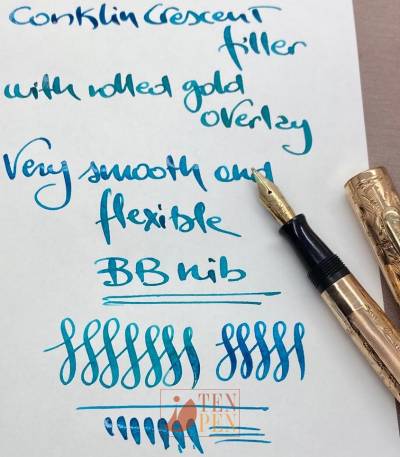 Conklin Crescent
filler
with rolled gold
overlay
Very smooth and
flexible
BB nib
TEN
PEN